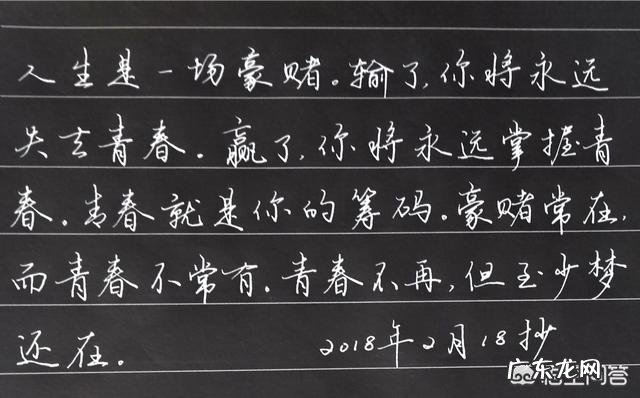 人生是一场豪赌。输了,你将永远
失去青春。赢了,你将永远掌握青
春。青春就是你的筹码。豪赌常在,
而青春不常有。青春不再,但至少梦
还在。 2018年2月18抄
广东龙网
悟空问答